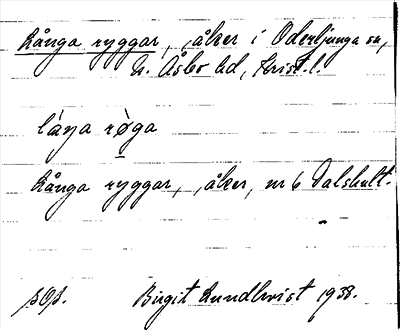 Långa ryggar, åker i Oderljunga sn,
N. Åsbo hd, Krist. l.
låŋa røga
Långa ryggar, åker, nr 6 Dalshult.
Birgit Lundkvist 1938.